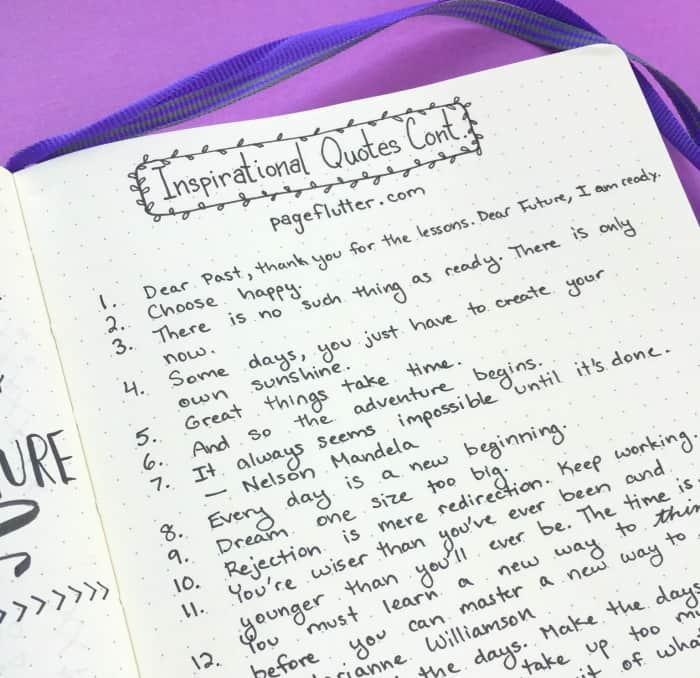 Inspirational Quotes Cont.
pageflutter.com
1. Dear Past, thank you for the lessons. Dear Future, I am ready.
2. Choose happy.
3. There is no such thing as ready. There is only
now.
4. Some days, you just have to create your
own sunshine.
5. Great things take time.
6. And so the adventure begins.
7. It always seems impossible until it's done.
— Nelson Mandela
8. Every day is a new beginning.
9. Dream one size too big.
10. Rejection is mere redirection. Keep working.
11. You're wiser than you've ever been and
younger than you'll ever be. The time is
12. You must learn a new way to
before you can master a new way to
Williamson
the days. Make the days
take up too
of
URE